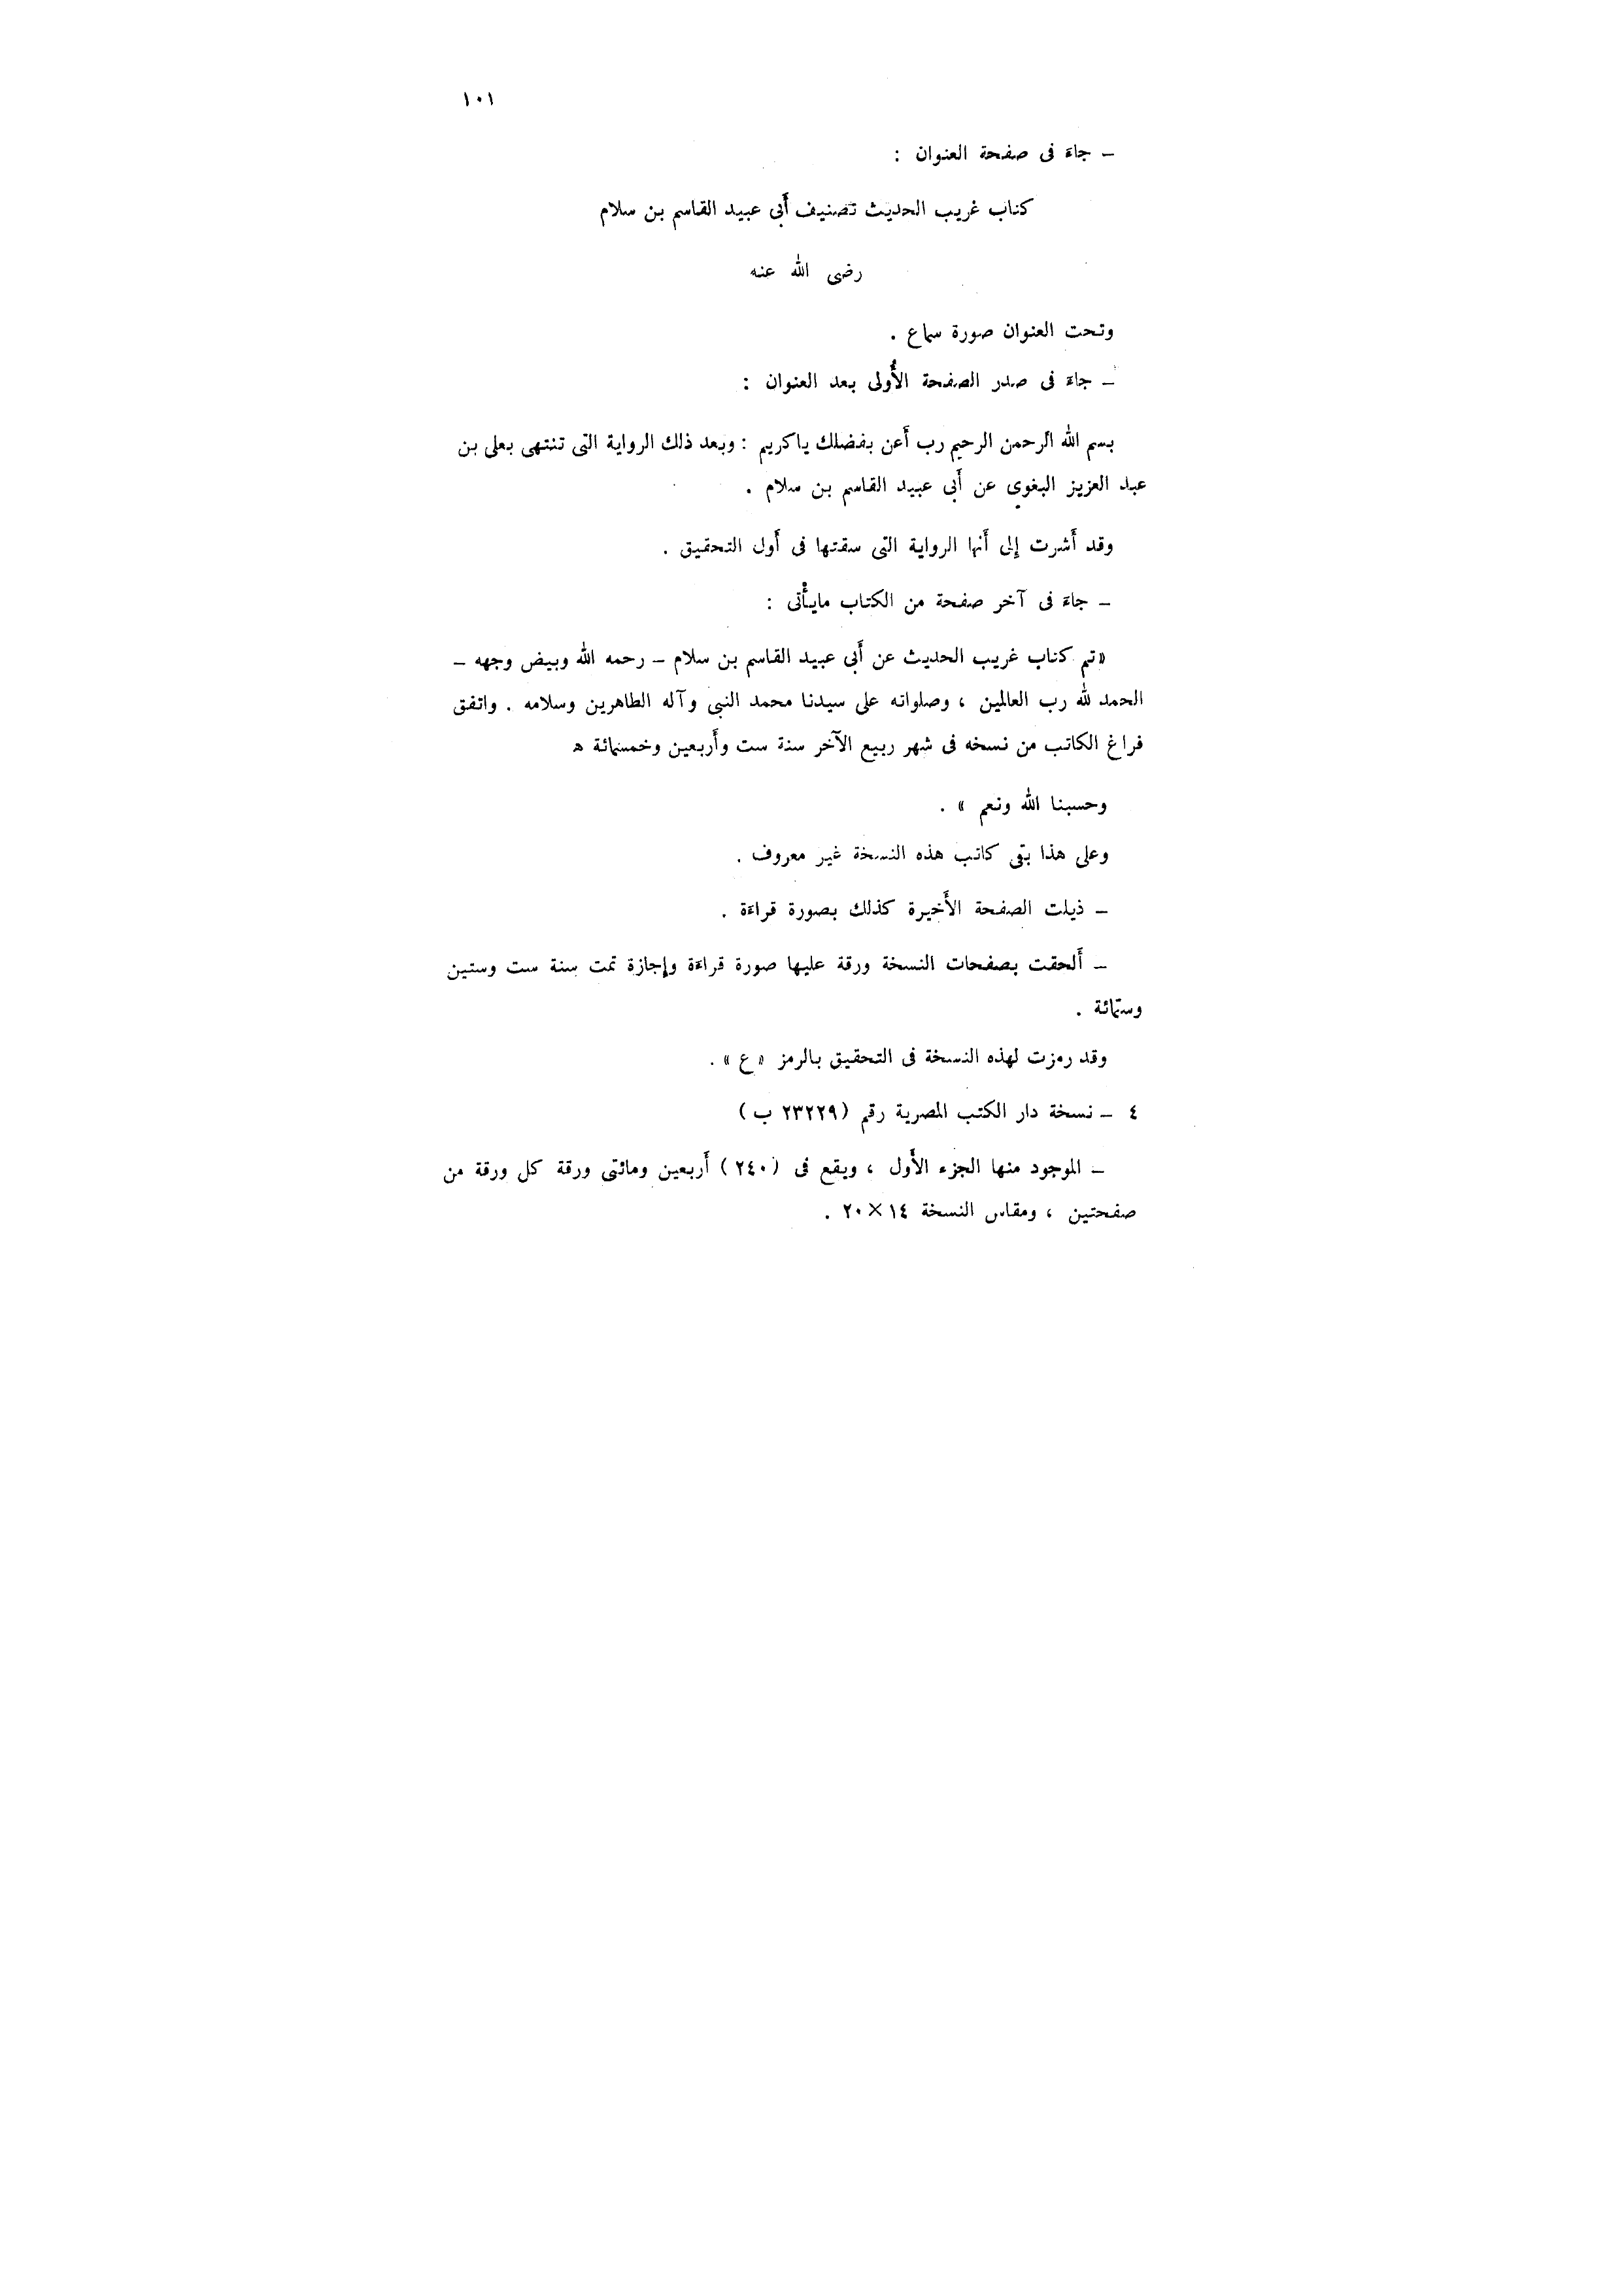 ١٠١
– جاءَ فى صفحة العنوان :
كتاب غريب الحديث تصنيف أَبى عبيد القاسم بن سلام
رضى الله عنه
وتحت العنوان صورة سماع .
– جاءَ فى صدر الصفحة الأُولى بعد العنوان :
بسم الله الرحمن الرحيم رب أَعن بفضلك ياكريم : وبعد ذلك الرواية التى تنتهى بعلى بن
عبد العزيز البغوى عن أَبى عبيد القاسم بن سلام .
وقد أَشرت إلى أَنها الرواية التى سقتها فى أَول التحقيق .
– جاءَ فى آخر صفحة من الكتاب مايأْتى :
«تم كتاب غريب الحديث عن أَبى عبيد القاسم بن سلام – رحمه الله وبيض وجهه –
الحمد لله رب العالمين ، وصلواته على سيدنا محمد النبى وآله الطاهرين وسلامه . واتفق
فراغ الكاتب من نسخه فى شهر ربيع الآخر سنة ست وأَربعين وخمسمائة ه
وحسبنا الله ونعم » .
وعلى هذا بقى كاتب هذه النسخة غير معروف .
– ذيلت الصفحة الأَخيرة كذلك بصورة قراءَة .
– أَلحقت بصفحات النسخة ورقة عليها صورة قراءَة وإجازة تمت سنة ست وستين
وستمائة .
وقد رمزت لهذه النسخة فى التحقيق بالرمز «ع» .
٤ – نسخة دار الكتب المصرية رقم (٢٣٢٢٩ ب)
– الموجود منها الجزء الأَول ، ويقع فى (٢٤٠) أَربعين ومائتى ورقة كل ورقة من
صفحتين ، ومقاس النسخة ١٤×٢٠ .